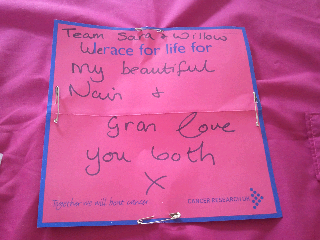 Team Sara & Willow
We race for life for
my beautiful
Nain &
gran love
you both
X
Together we will beat cancer
CANCER RESEARCH UK